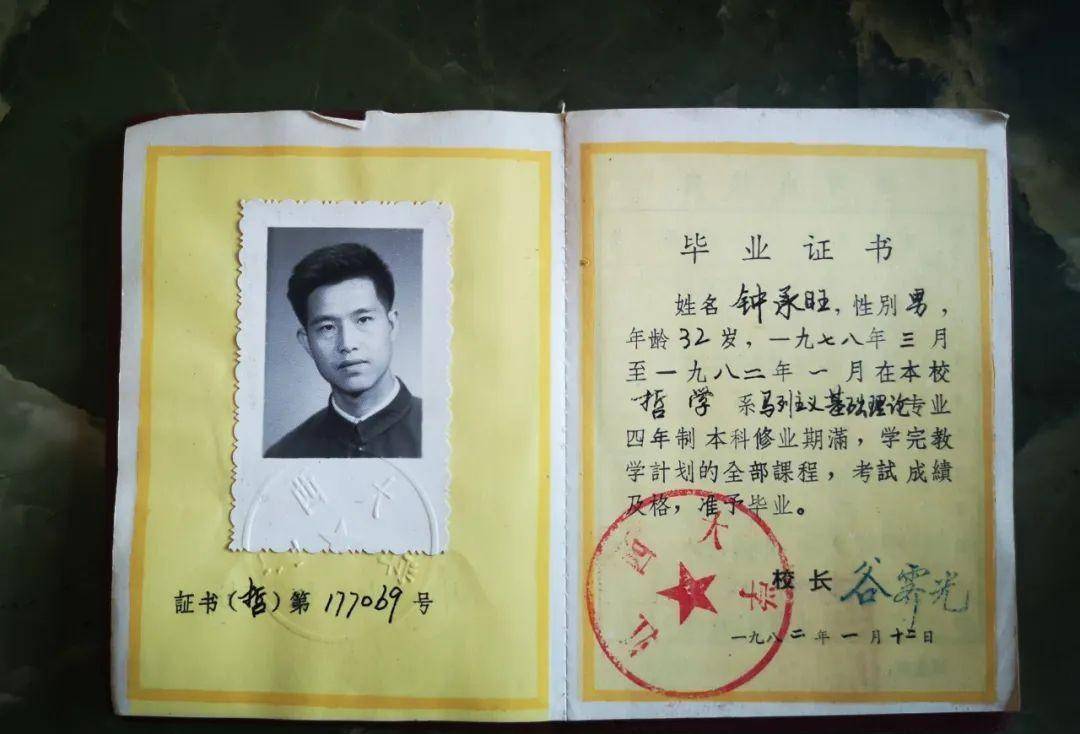 証书(哲)第 177069 号
毕业证书
姓名 钟承旺, 性别 男,
年龄 32 岁, 一九七八年 三 月
至一九八二年 一 月在本校
哲学 系马列主义基础理论专业
四年制 本科修业期滿, 学完教
学計划的全部課程, 考試成績
及格, 准予毕业。
江西大学
校长 谷霁光
一九八二年一月十二日